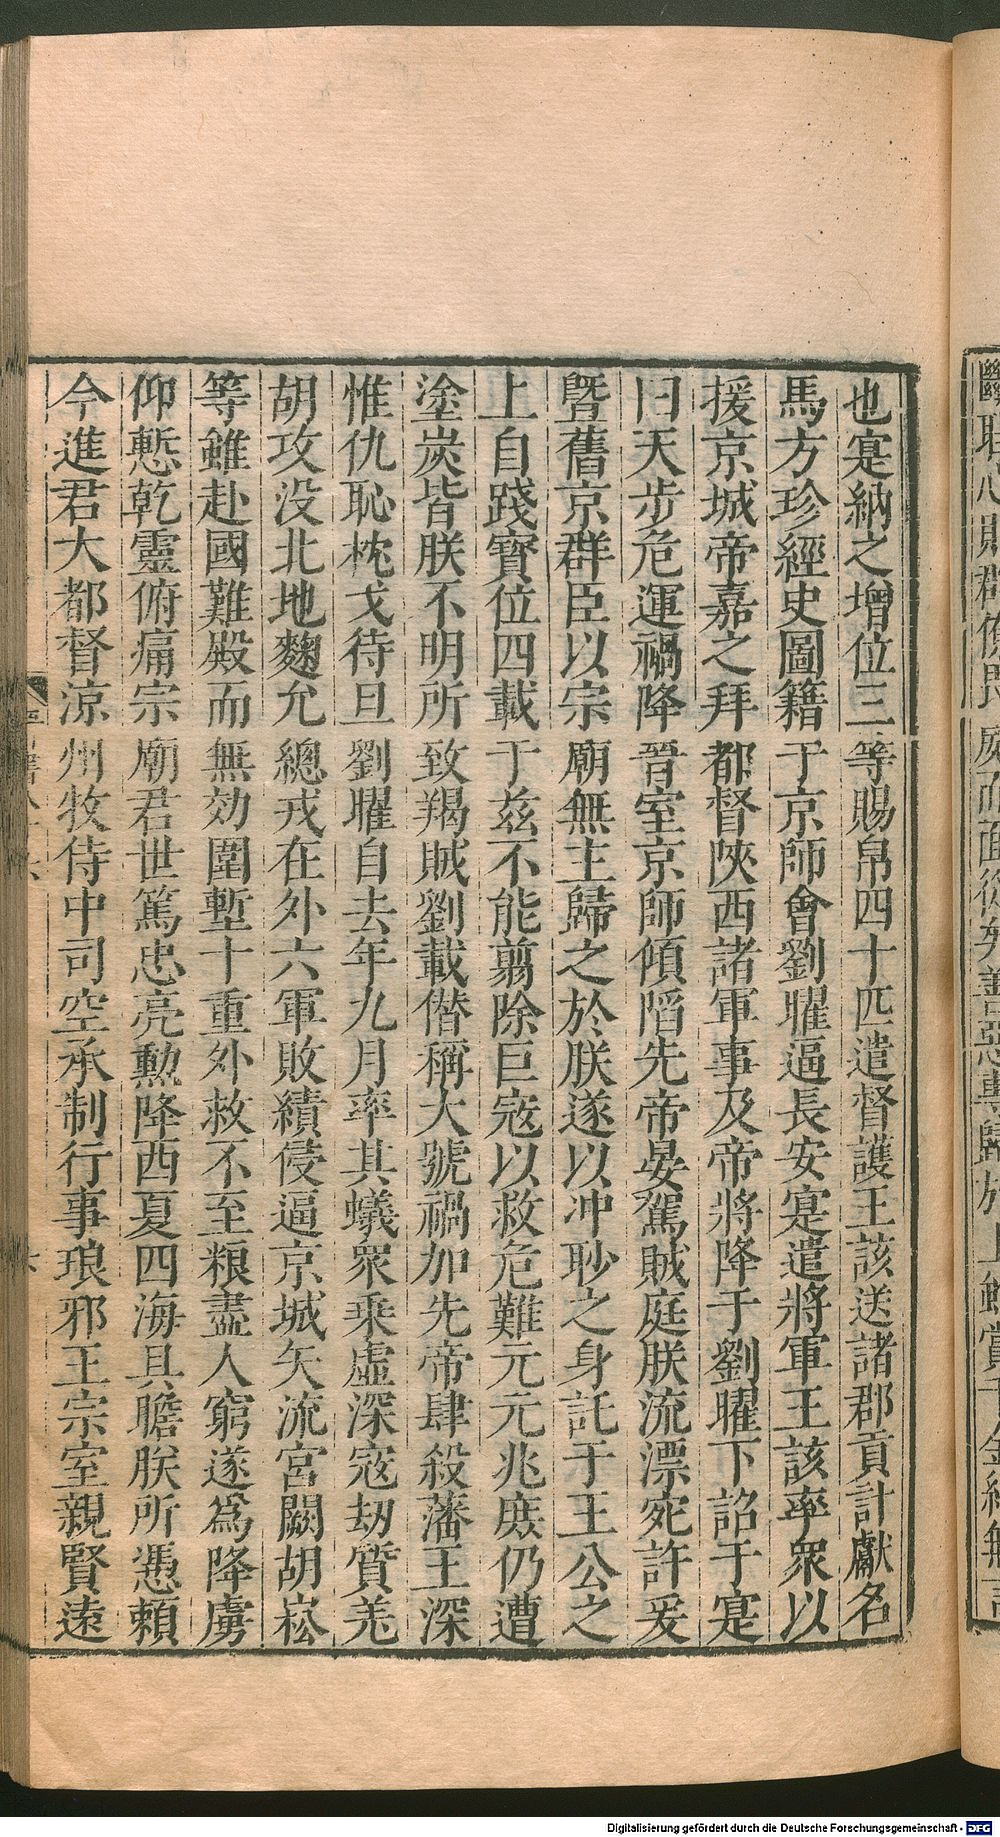 也寔納之增位三等賜帛四十匹遣督護王該送諸郡貢計獻名
馬方珍經史圖籍于京師會劉曜逼長安寔遣將軍王該率衆以
援京城帝嘉之拜都督陜西諸軍事及帝將降于劉曜下詔于寔
曰天步危運禍降晉室京師傾陷先帝晏駕賊庭朕流漂宛許爰
曁舊京群臣以宗廟無主歸之於朕遂以冲眇之身託于王公之
上自踐寶位四載于兹不能翦除巨寇以救危難元元兆庶仍遭
塗炭皆朕不明所致羯賊劉載僭稱大號禍加先帝肆殺藩王深
惟仇恥枕戈待旦劉曜自去年九月率其蟻衆乘虛深寇劫質羌
胡攻没北地麴允總戎在外六軍敗績侵逼京城矢流宮闕胡崧
等雖赴國難殿而無効圍塹十重外救不至粮盡人窮遂爲降虜
仰慙乾靈俯痛宗廟君世篤忠亮勲降西夏四海具瞻朕所憑賴
今進君大都督涼州牧侍中司空承制行事琅邪王宗室親賢遠
Digitalisierung gefördert durch die Deutsche Forschungsgemeinschaft - DFG